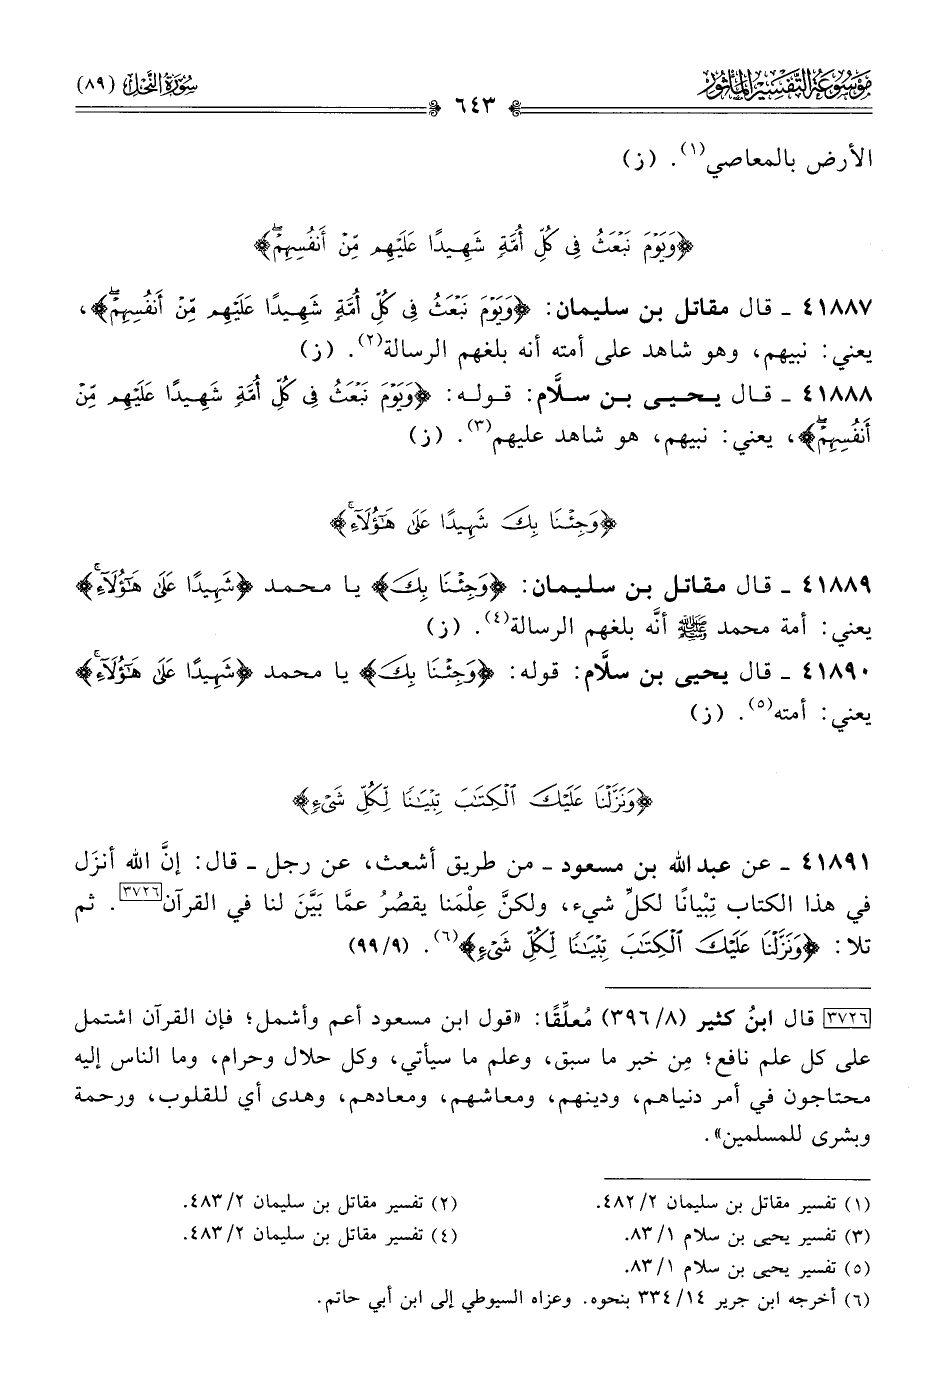 مَوْسُوعَةُ التَّفْسِيرِ المَأْثُورِ
سُورَةُ النَّحْلِ (٨٩)
٦٤٣
الأرض بالمعاصي(١). (ز)
﴿وَيَوْمَ نَبْعَثُ فِي كُلِّ أُمَّةٍ شَهِيدًا عَلَيْهِم مِّنْ أَنفُسِهِمْۖ﴾
٤١٨٨٧ ـ قال مقاتل بن سليمان: ﴿وَيَوْمَ نَبْعَثُ فِي كُلِّ أُمَّةٍ شَهِيدًا عَلَيْهِم مِّنْ أَنفُسِهِمْۖ﴾،
يعني: نبيهم، وهو شاهد على أمته أنه بلغهم الرسالة(٢). (ز)
٤١٨٨٨ ـ قال يحيى بن سلَّام: قوله: ﴿وَيَوْمَ نَبْعَثُ فِي كُلِّ أُمَّةٍ شَهِيدًا عَلَيْهِم مِّنْ
أَنفُسِهِمْۖ﴾، يعني: نبيهم، هو شاهد عليهم(٣). (ز)
﴿وَجِئْنَا بِكَ شَهِيدًا عَلَىٰ هَٰٓؤُلَآءِۚ﴾
٤١٨٨٩ ـ قال مقاتل بن سليمان: ﴿وَجِئْنَا بِكَ﴾ يا محمد ﴿شَهِيدًا عَلَىٰ هَٰٓؤُلَآءِۚ﴾
يعني: أمة محمد ﷺ أنَّه بلغهم الرسالة(٤). (ز)
٤١٨٩٠ ـ قال يحيى بن سلَّام: قوله: ﴿وَجِئْنَا بِكَ﴾ يا محمد ﴿شَهِيدًا عَلَىٰ هَٰٓؤُلَآءِۚ﴾
يعني: أمته(٥). (ز)
﴿وَنَزَّلْنَا عَلَيْكَ ٱلْكِتَٰبَ تِبْيَٰنًا لِّكُلِّ شَيْءٍ﴾
٤١٨٩١ ـ عن عبد الله بن مسعود ـ من طريق أشعث، عن رجل ـ قال: إنَّ الله أنزَل
في هذا الكتاب تِبْيانًا لكلِّ شيء، ولكنَّ عِلْمَنا يقصُرُ عمَّا بَيَّنَ لنا في القرآن[٣٧٢٦]. ثم
تلا: ﴿وَنَزَّلْنَا عَلَيْكَ ٱلْكِتَٰبَ تِبْيَٰنًا لِّكُلِّ شَيْءٍ﴾(٦). (٩/ ٩٩)
[٣٧٢٦] قال ابنُ كثير (٨/ ٣٩٦) مُعلِّقًا: «قول ابن مسعود أعم وأشمل؛ فإن القرآن اشتمل
على كل علم نافع؛ مِن خبر ما سبق، وعلم ما سيأتي، وكل حلال وحرام، وما الناس إليه
محتاجون في أمر دنياهم، ودينهم، ومعاشهم، ومعادهم، وهدى أي للقلوب، ورحمة
وبشرى للمسلمين».
(١) تفسير مقاتل بن سليمان ٢/ ٤٨٢.
(٢) تفسير مقاتل بن سليمان ٢/ ٤٨٣.
(٣) تفسير يحيى بن سلام ١/ ٨٣.
(٤) تفسير مقاتل بن سليمان ٢/ ٤٨٣.
(٥) تفسير يحيى بن سلام ١/ ٨٣.
(٦) أخرجه ابن جرير ١٤/ ٣٣٤ بنحوه. وعزاه السيوطي إلى ابن أبي حاتم.